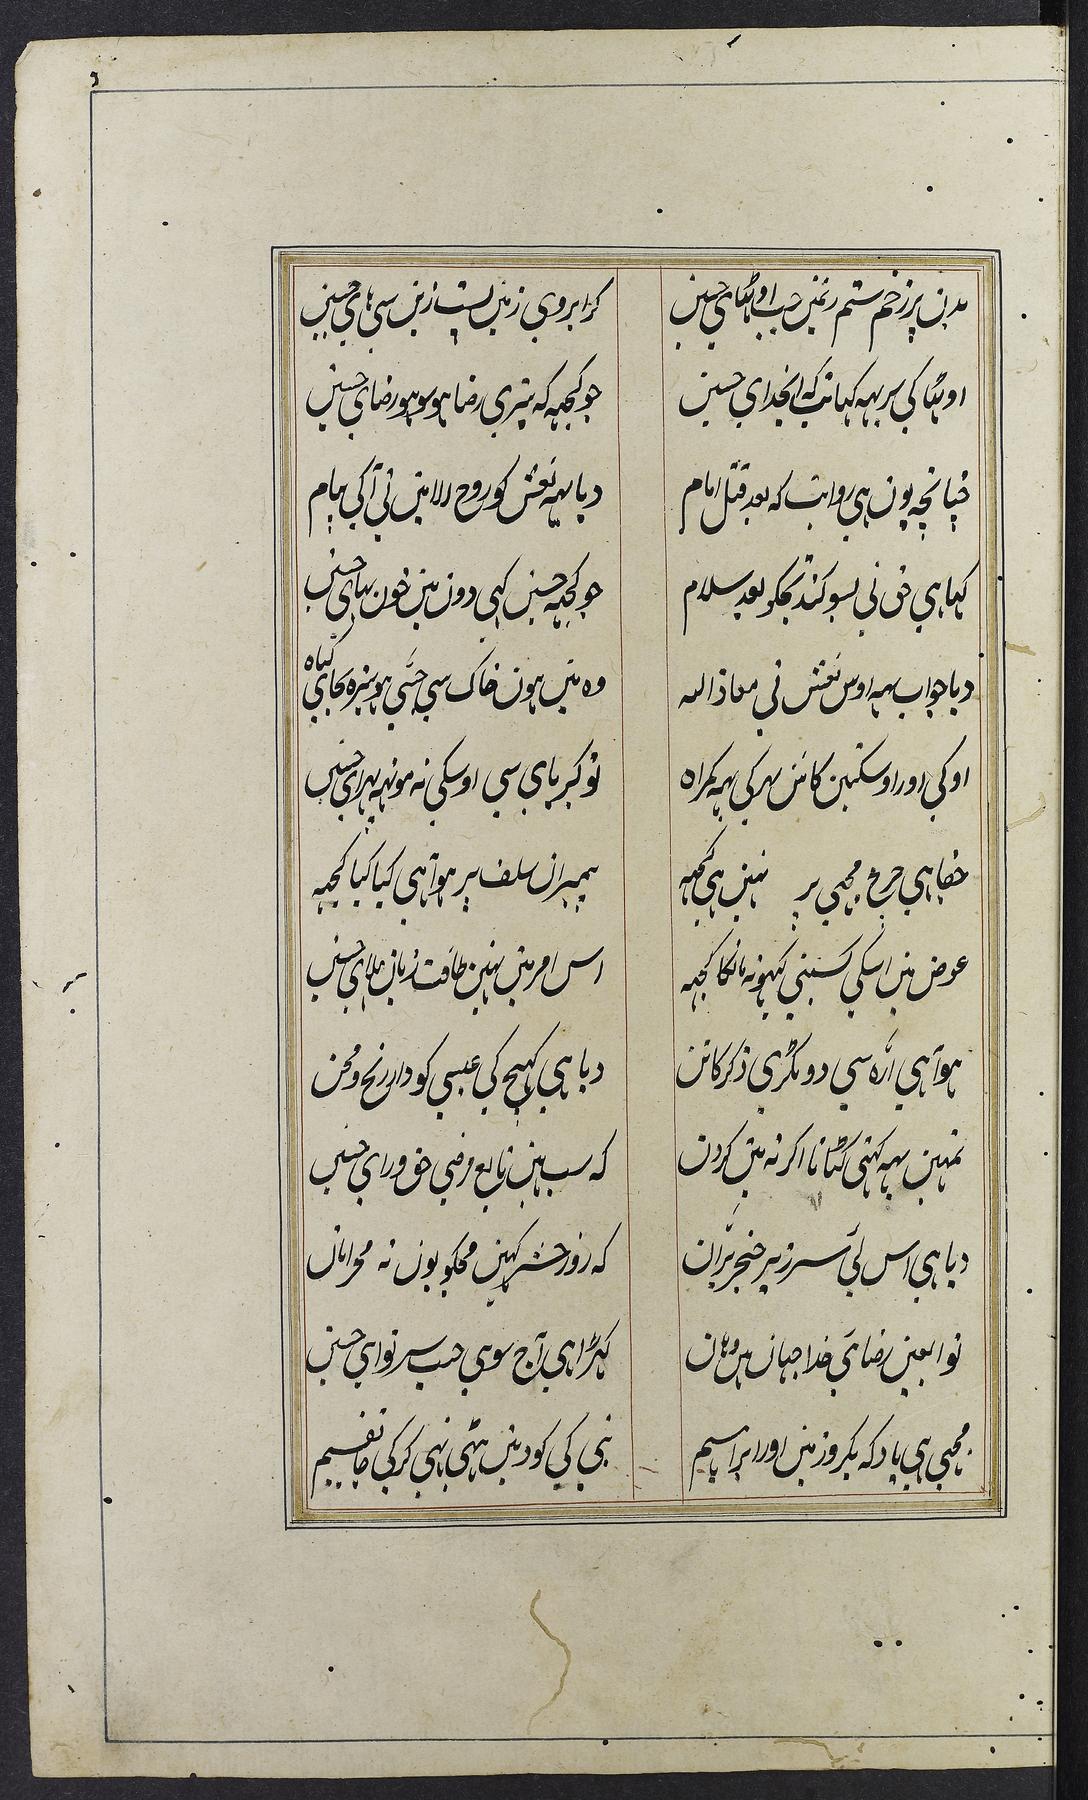 بدن پر زخم ستم رنمین جب اوٹھای حسین
کرا بروی زمین پست زین سی های حسین
اوٹھا کی سر یہہ کہا تب که ایخدای حسین
جو کچہہ که تیری رضا هو سو هو رضای حسین
چنانچه یون هی روایت که بعد قتل امام
دیا یہہ نعش کو روح الامین نی آ کی پیام
کہا هی حق نی بسوکند تجکو بعد سلام
جو کچہہ حسین کہی دون مین خون بہای حسین
دیا جواب یہہ اوس نعش نی معاذ الله
وه مین هون خاک سی جسکی هو سبزه بجای کیاه
اوکی اور اوسکتین کاٹین سر کی یہہ کمراه
تو کبریای سی اوسکی نه مونہه پہرای حسین
خفا هی چرخ مجہی پر نہین هی کچہہ
پیمبران سلف پر هوا هی کیا کیا کچہہ
عوض مین اسکی کسینی کہو نه مانکا کچہہ
اس امر مین نہین طاقت زبان هلای حسین
هوا هی ارّه سی دو ٹکڑی ذکر کا تن
دیا هی کہینچ کی عیسی کو دار رنج و محن
تمہین یہہ کہتی کٹاتا اکر نه مین کردن
که سب هین تابع مرضی حق ورای حسین
دیا هی اس لئی سر زیر خنجر برّان
که روز حشر کہین مجکو یون نه محرمان
تو العین رضای خدا جہان مین وهان
کہڑا هی آج سوی جیب سر نوای حسین
مجہی هی یاد که یکروز مین اور ابراهیم
نبی کی کود مین بیٹہی تہی کر کی جا تقسیم